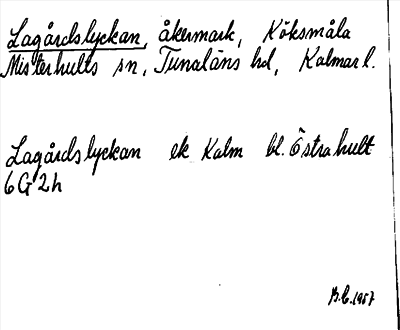 Lagårdslyckan, åkermark, Köksmåla
Misterhults sn, Tunaläns hd, Kalmar l.
Lagårdslyckan ek Kalm bl. Östrahult
6G 2h
B.C. 1957